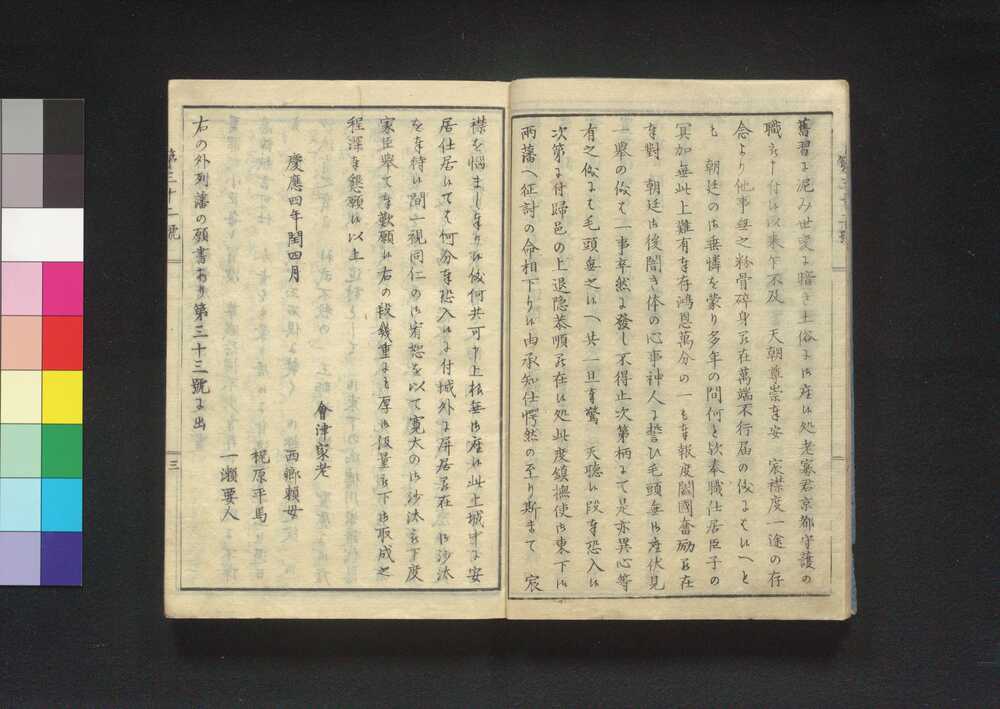 舊習に泥み世変に暗き土俗に御座候処老寡君京都守護の
職被申付候以来乍不及　天朝尊崇奉安　宸襟度一途の存
念より他事無之粉骨碎身罷在萬端不行届の儀には候へと
も　朝廷の御垂憐を蒙り多年の間何と歟奉職仕居臣子の
冥加無此上難有奉存鴻恩萬分の一も奉報度闔國奮励罷在
奉對　朝廷候後闇き体の心事神人に誓ひ毛頭無御座伏見
一擧の儀は一事卒然に發し不得止次第柄にて是亦異心等
有之儀には毛頭無之候へ共一旦奉驚　天聴候段奉恐入候
次第に付歸邑の上退隠恭順罷在候処此度鎮撫使御東下御
両藩へ征討の命相下り候由承知仕愕然の至り斯まて　宸
襟を悩まし奉り候儀何共可申上様無御座候此上城中に安
居仕居候ては何分奉恐入候に付城外に屏居罷在御沙汰
を奉待候間一視同仁の御宥恕を以て寛大の御沙汰被下度
家臣擧て奉歎願候右の段幾重にも厚御汲量被下御取成之
程深奉懇願候以上
慶應四年閏四月
會津家老
西郷頼母
梶原平馬
一瀬要人
右の外列藩の願書あり第三十三號に出
第三十二號
三